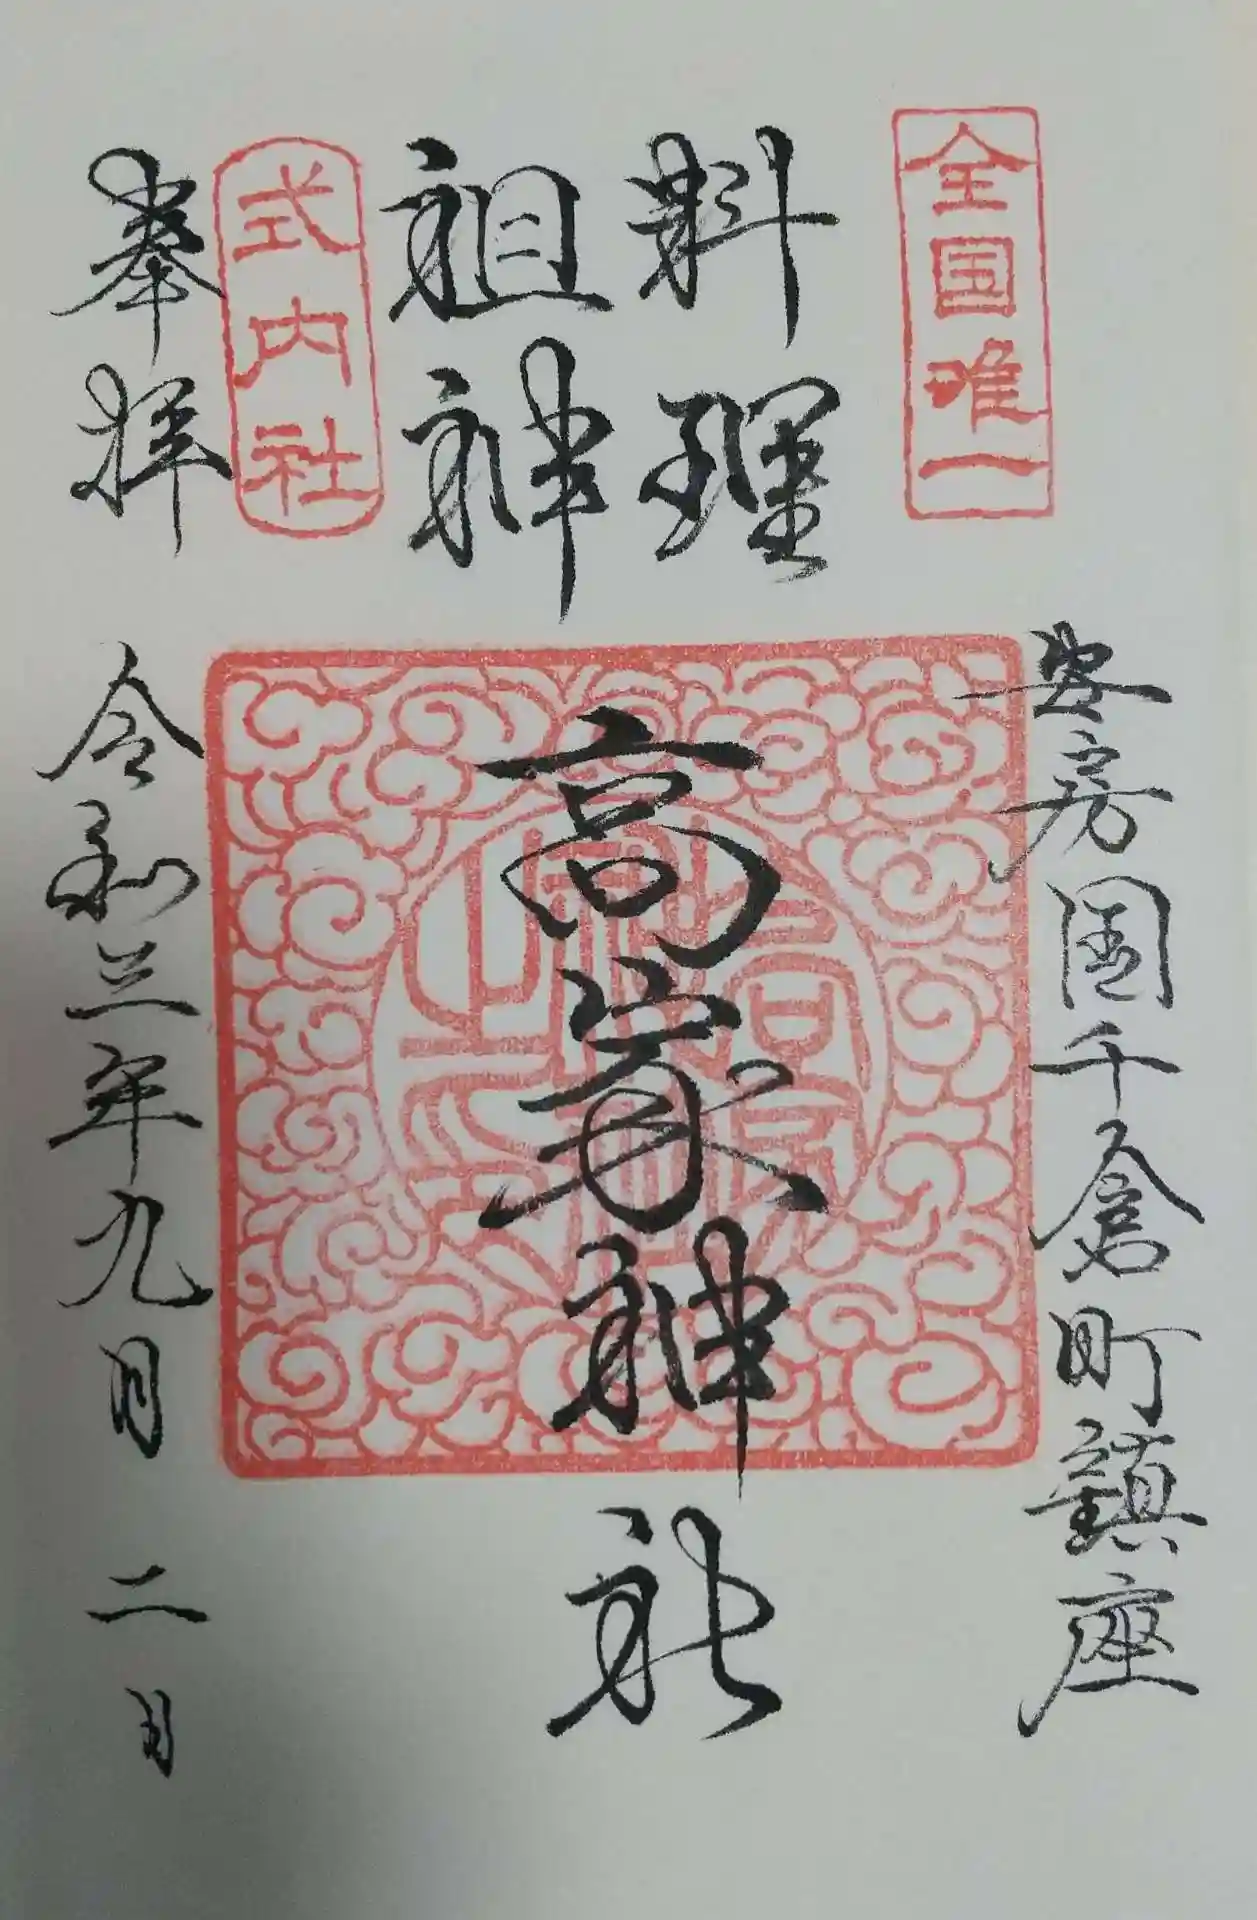 全国唯一
安房国千倉町鎮座
料理
祖神
高家神社
式内社
奉拝
令和三年九月二日